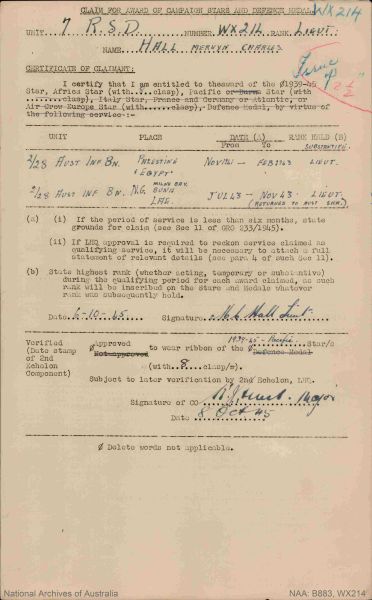 CLAIM FOR AWARD OF CAMPAIGN STARS AND DEFENCE MEDAL.
WX214
UNIT 7 R.S.D NUMBER WX214 RANK LIEUT:
NAME HALL MERVYN CHARLES
CERTIFICATE OF CLAIMANT:
I certify that I am entitled to the award of the Ø1939-45
Star, Africa Star (with....clasp), Pacific or Burma Star (with
........clasp), Italy Star, France and Germany or Atlantic, or
Air Crew Europe Star (with......clasp), Defence Medal, by virtue of
the following service:-
UNIT PLACE DATE (A) RANK HELD (B)
From To SUBSTANTIVE
2/28 AUST INF BN. PALESTINE & EGYPT NOV 41 - FEB 43 LIEUT.
2/28 AUST INF BN. N.G. MILNE BAY. BUNA LAE. JUL 43 - NOV 43. LIEUT.
(RETURNED TO AUST
(a) (i) If the period of service is less than six months, state
grounds for claim (see Sec 11 of GRO 233/1945).
(ii) If LHQ approval is required to reckon service claimed as
qualifying service, it will be necessary to attach a full
statement of relevant details (see para 4 of such Sec 11).
(b) State highest rank (whether acting, temporary or substantive)
during the qualifying period for each award claimed, as such
rank will be inscribed on the Stars and Medals whatever
rank was subsequently held.
Date 6-10-45 Signature M C Hall Lieut
1939-45 - Pacific
Verified Approved to wear ribbon of the Ø Star/s
(Date stamp Not approved Defence Medal
of 2nd
Echelon (with 8 clasp/s).
Component)
Subject to later verification by 2nd Echelon, LHQ.
Signature of CO Major
Date 8 Oct 45
Ø Delete words not applicable.
National Archives of Australia
NAA: B883, WX214